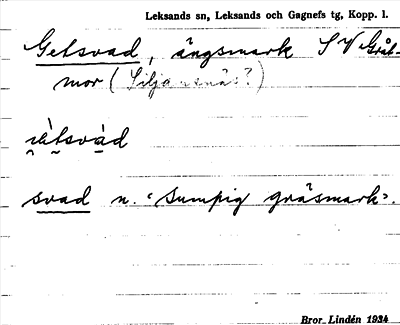 Leksands sn, Leksands och Gagnefs tg, Kopp. l.
Getsvad, ängsmark S V Gråt-
mor (Siljansnäs?)
svad n. "sumpig gräsmark".
Bror Lindén 1934